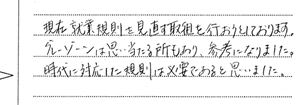 現在就業規則を見直す取組を行おうとしております。
グレーゾーンは思い当たる所もあり、参考になりました。
時代に対応した規則は必要であると思いました。